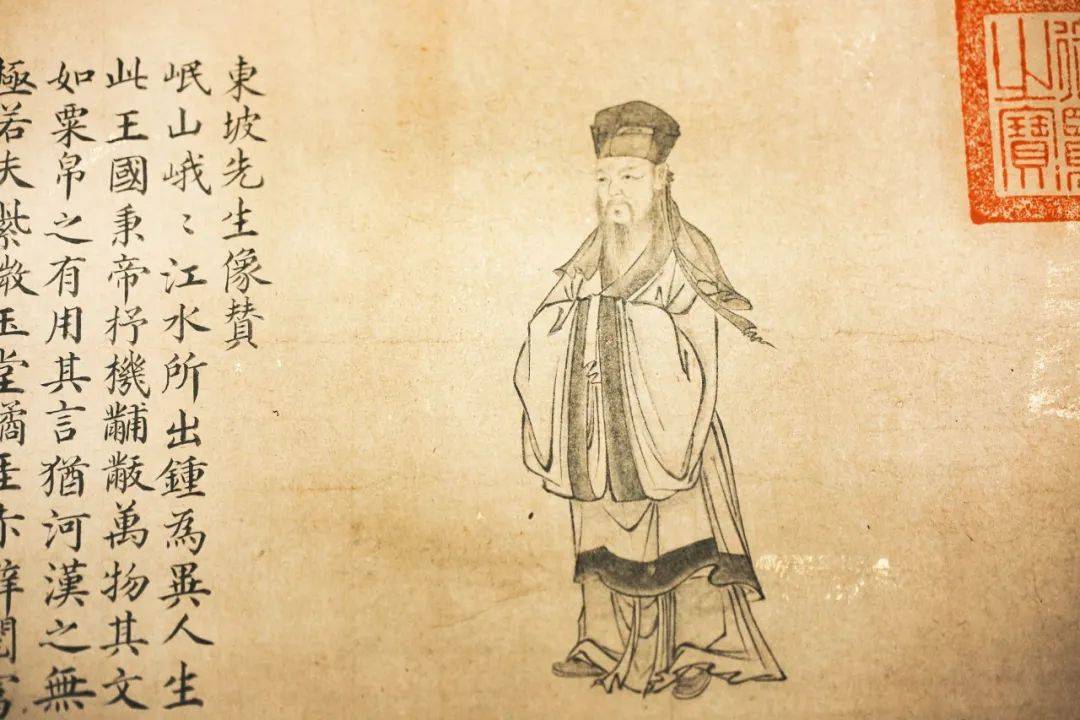 御覽
之寶
東坡先生像賛
岷山峨〻江水所出鍾為異人生
此王國秉帝杼機黼黻萬物其文
如粟帛之有用其言猶河漢之無
極若夫紫微玉堂